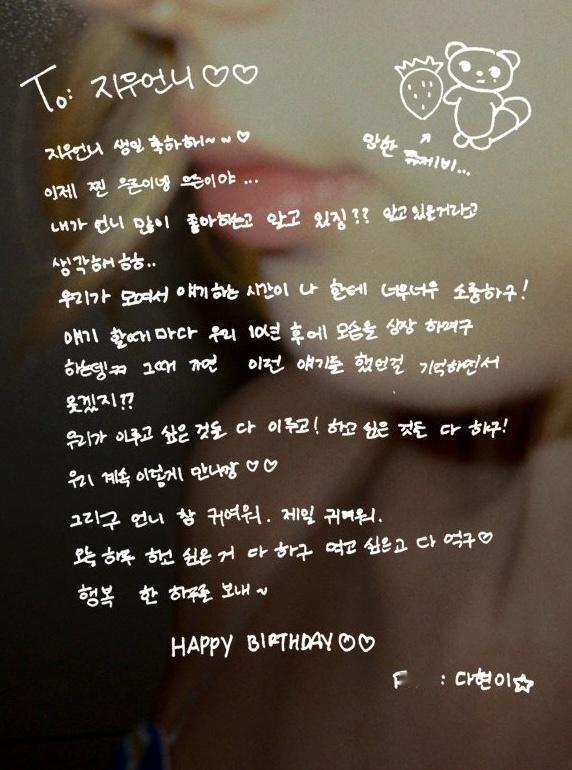 To: 지우언니♡♡
지우언니 생일 축하해~~♡
이제 찐 야...
내가 언니 많이 좋아하는고 알고 있징?? 알고있을거라고
생각해 ㅎㅎ..
우리가 모여서 얘기하는 시간이 나 한테 너무너무 소중하구!
얘기 할때마다 우리 10년 후에 모습을 상상 하려구
하는뎅ㅋㅋ 그때 가면 이런 얘기들 했던걸 기억하면서
웃겠지??
우리가 이루고 싶은 것도 다 이루고! 하고 싶은 것도 다 하구!
우리 계속 이렇게 만나장♡♡
그리구 언니 참 귀여워. 제일 귀여워.
오늘 하루 하고 싶은 거 다 하구 먹고 싶은고 다 먹구♡
행복 한 하루를 보내~
HAPPY BIRTHDAY♡♡
F : 다현이☆